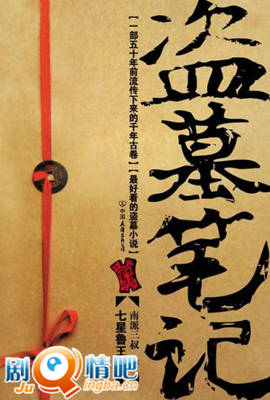 盗墓笔记
【一部五十年前流传下来的千年古卷】
【最好看的盗墓小说】
中国友谊出版公司
南派三叔
七星鲁王
剧情吧
Ju
ingba.cn